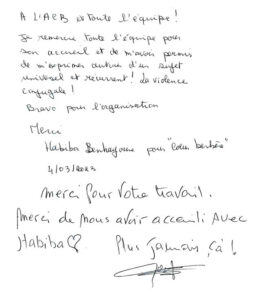 A l'ACB et toute l'équipe !
Je remercie toute l'équipe pour
son accueil et de m'avoir permis
de m'exprimer autour d'un sujet
universel et récurrent ! La violence
conjugale !
Bravo pour l'organisation
Merci
Habiba pour "Coeur berbère"
4/03/2023
Merci pour votre travail.
Merci de nous avoir accueilli avec
Habiba♡. Plus jamais çà !